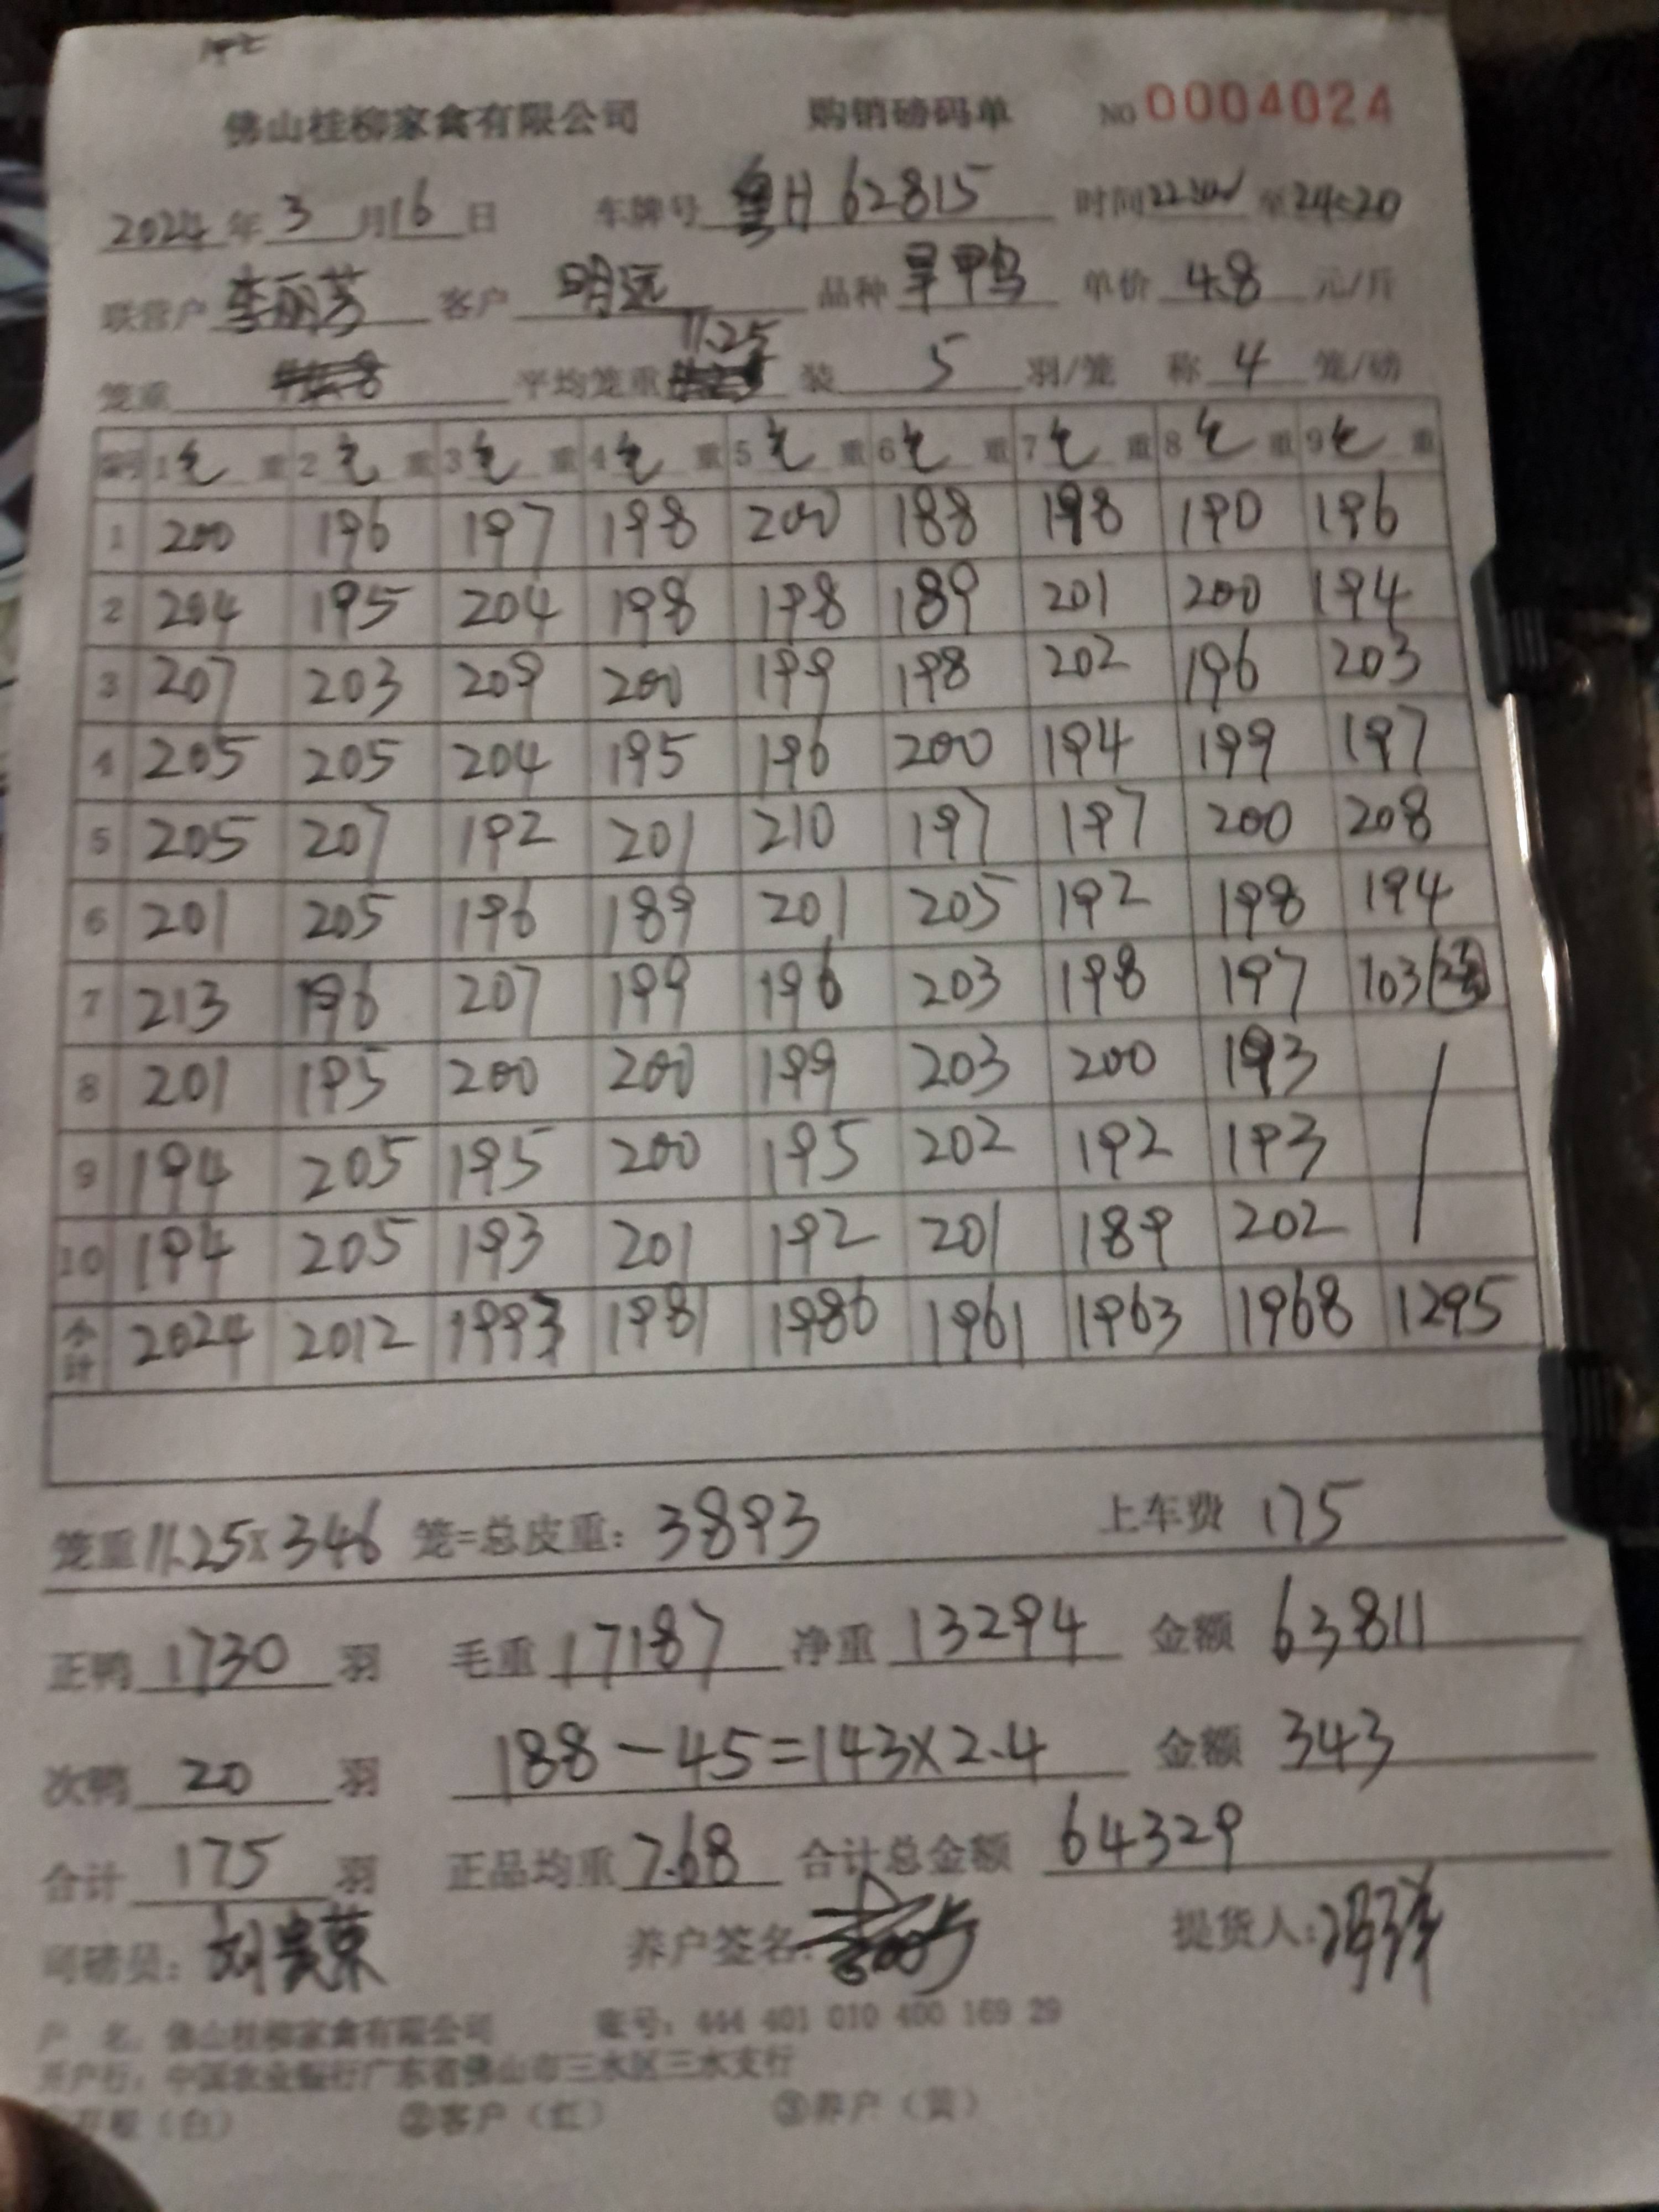 佛山桂柳家禽有限公司 购销磅码单 NO 0004024
2024 年 3 月 16 日 车牌号 粤H 62815 时间 至
联营户 李丽芬 客户 明远 品种 旱鸭 单价 4.8 元/斤
11.25
笼重 平均笼重 装 5 羽/笼 称 4 笼/磅
编号 1毛重 2毛重 3毛重 4毛重 5毛重 6毛重 7毛重 8毛重 9毛重
1 200 196 197 198 200 188 198 190 196
2 204 195 204 198 198 189 201 200 194
3 207 203 209 200 199 198 202 196 203
4 205 205 204 195 196 200 194 199 197
5 205 207 192 201 210 197 197 200 208
6 201 205 196 189 201 205 192 198 194
7 213 196 207 199 196 203 198 197 103
8 201 195 200 200 199 203 200 193
9 194 205 195 200 195 202 192 193
10 194 205 193 201 192 201 189 202
小计 2024 2012 1993 1981 1986 1961 1963 1968 1295
笼重 11.25x346 笼=总皮重: 3893 上车费 175
正鸭 1730 羽 毛重 17187 净重 13294 金额 63811
次鸭 20 羽 188-45=143x2.4 金额 343
合计 175 羽 正品均重 7.68 合计总金额 64329
司磅员: 刘贵荣 养户签名: 提货人:
户 名: 佛山桂柳家禽有限公司 账号: 444 401 010 400 169 29
开户行: 中国农业银行广东省佛山市三水区三水支行
①存根（白） ②客户（红） ③养户（黄）